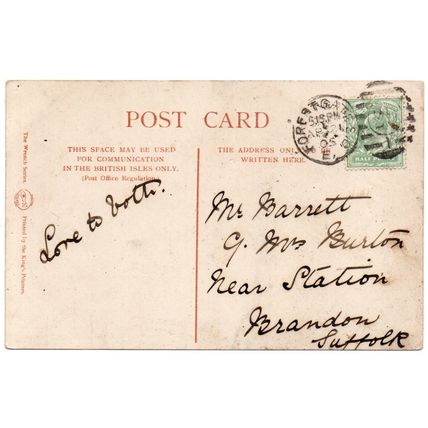 POST CARD
THIS SPACE MAY BE USED
FOR COMMUNICATION
IN THE BRITISH ISLES ONLY.
(Post Office Regulation).
THE ADDRESS ONLY
WRITTEN HERE.
FOREST GATE
HALF
The Wrench Series
Printed by the King's Printers.
Love to both.
Mr Barrett
Mrs Burton
Near Station
Brandon
Suffolk